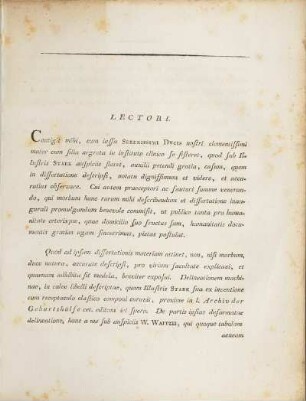 LECTORI.
Contigit mihi, cum iussu SERENISSIMI DUCIS nostri clementissimi
mater cum filia aegrota in instituto clinico se sisteret, quod sub Il-
lustris STARK auspiciis floret, nobili potenti grata, casum, quem
in dissertatione descripsi, notatu dignissimum et videre, et accu-
ratius observare. Cui autem praeceptori ac fautori summe veneran-
do, qui morbum hunc rarum mihi describendum et dissertatione inau-
gurali promulgandum benevole commisit, ut publice tanta pro huma-
nitate
gratias agam sincerrimas, pietas postulat.
Quod ad ipsam dissertationis materiam attinet, eam, nisi morbum,
duce natura, accurate descripsi, pro virium facultate explicavi, et
quantum adhibita sit medela, breviter exposui. Delineationem machi-
nae, in calce libelli descriptae, quam Illustris STARK sua ex inventione
cum receptaculo elastico componi curavit, promisse in s. Archiv der
Geburtshülfe cet. editam ut spero. De partis ipsius deformatae
delineatione, hanc a me sub auspiciis W. WAITZII, qui quoque tabulam
aeneam